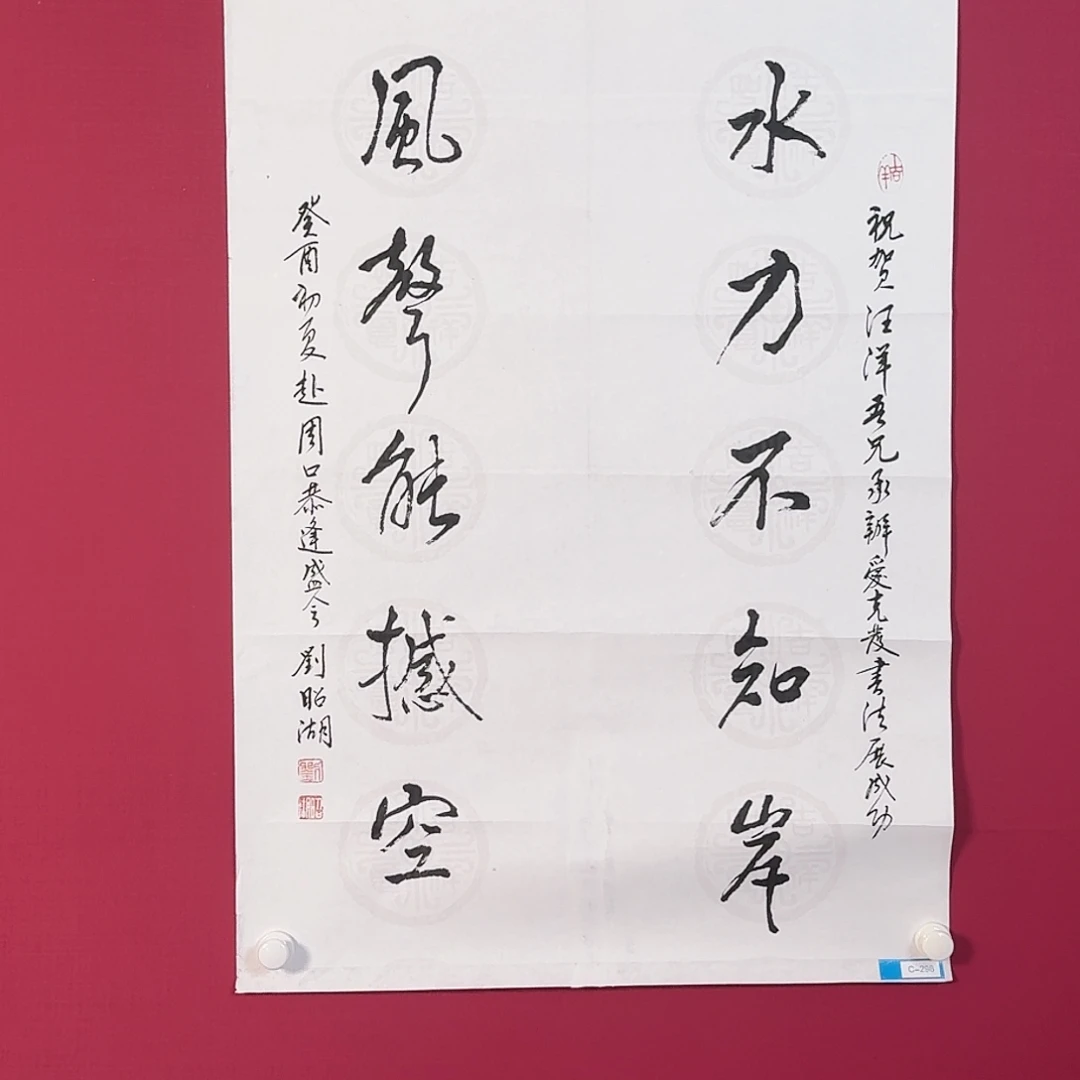 祝贺汪洋吾兄承辦爱克发書法展成功
水力不知岸
風聲能撼空
癸酉初夏赴周口恭逢盛会 劉昭湖
C-298